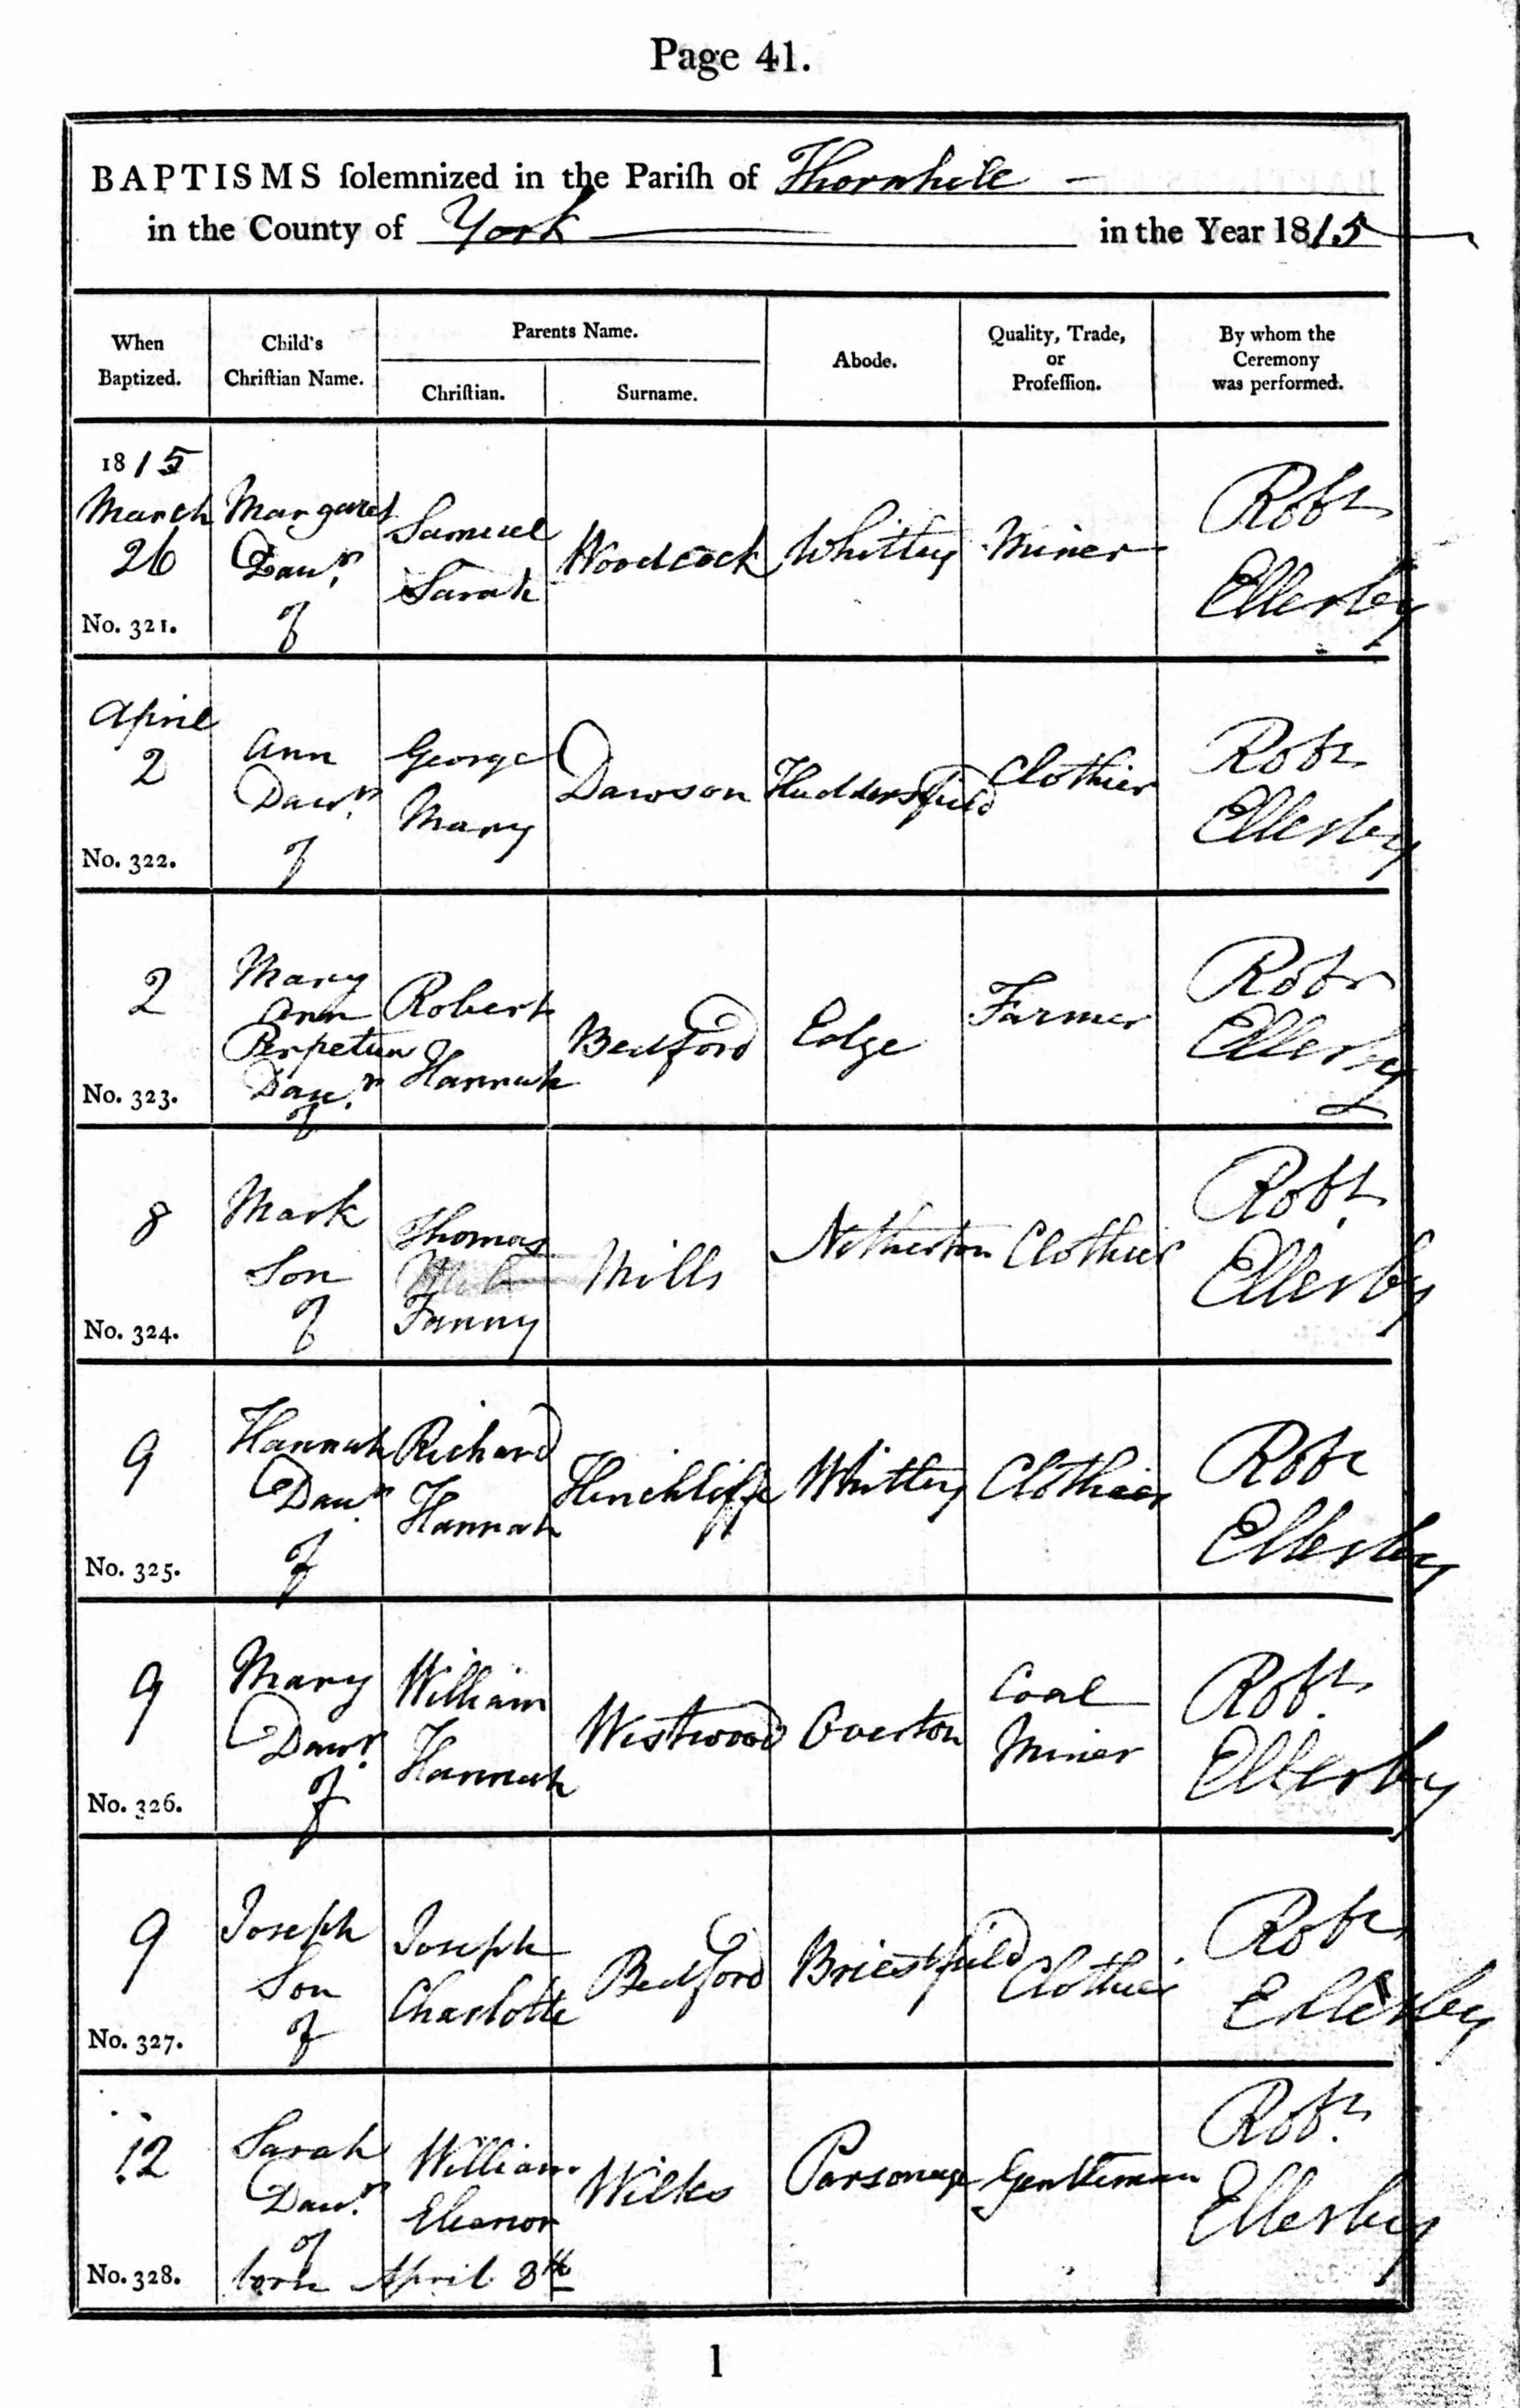 Page 41.
BAPTISMS ſolemnized in the Pariſh of Thornhill
in the County of York in the Year 1815
When
Baptized.
Child's
Chriſtian Name.
Parents Name.
Chriſtian.
Surname.
Abode.
Quality, Trade,
or
Profeſſion.
By whom the
Ceremony
was performed.
1815
March
26
No. 321.
Margaret
Daur.
of
Samuel
Sarah
Woodcock
Whitley
Miner
Robt
Ellerby
April
2
No. 322.
Ann
Daur.
of
George
Mary
Dawson
Huddersfield
Clothier
Robt
Ellerby
2
No. 323.
Mary
Ann
Perpetua
Daur.
of
Robert
Hannah
Bedford
Edge
Farmer
Robt
Ellerby
8
No. 324.
Mark
Son
of
Thomas
Fanny
Mills
Netherton
Clothier
Robt.
Ellerby
9
No. 325.
Hannah
Daur.
of
Richard
Hannah
Hinchliffe
Whitley
Clothier
Robt
Ellerby
9
No. 326.
Mary
Daur.
of
William
Hannah
Westwood
Overton
Coal
Miner
Robt.
Ellerby
9
No. 327.
Joseph
Son
of
Joseph
Charlotte
Bedford
Briestfield
Clothier
Robt
Ellerby
12
No. 328.
Sarah
Daur.
of
born April 8th
William
Eleanor
Wilks
Parsonage
Gentleman
Robt.
Ellerby
l